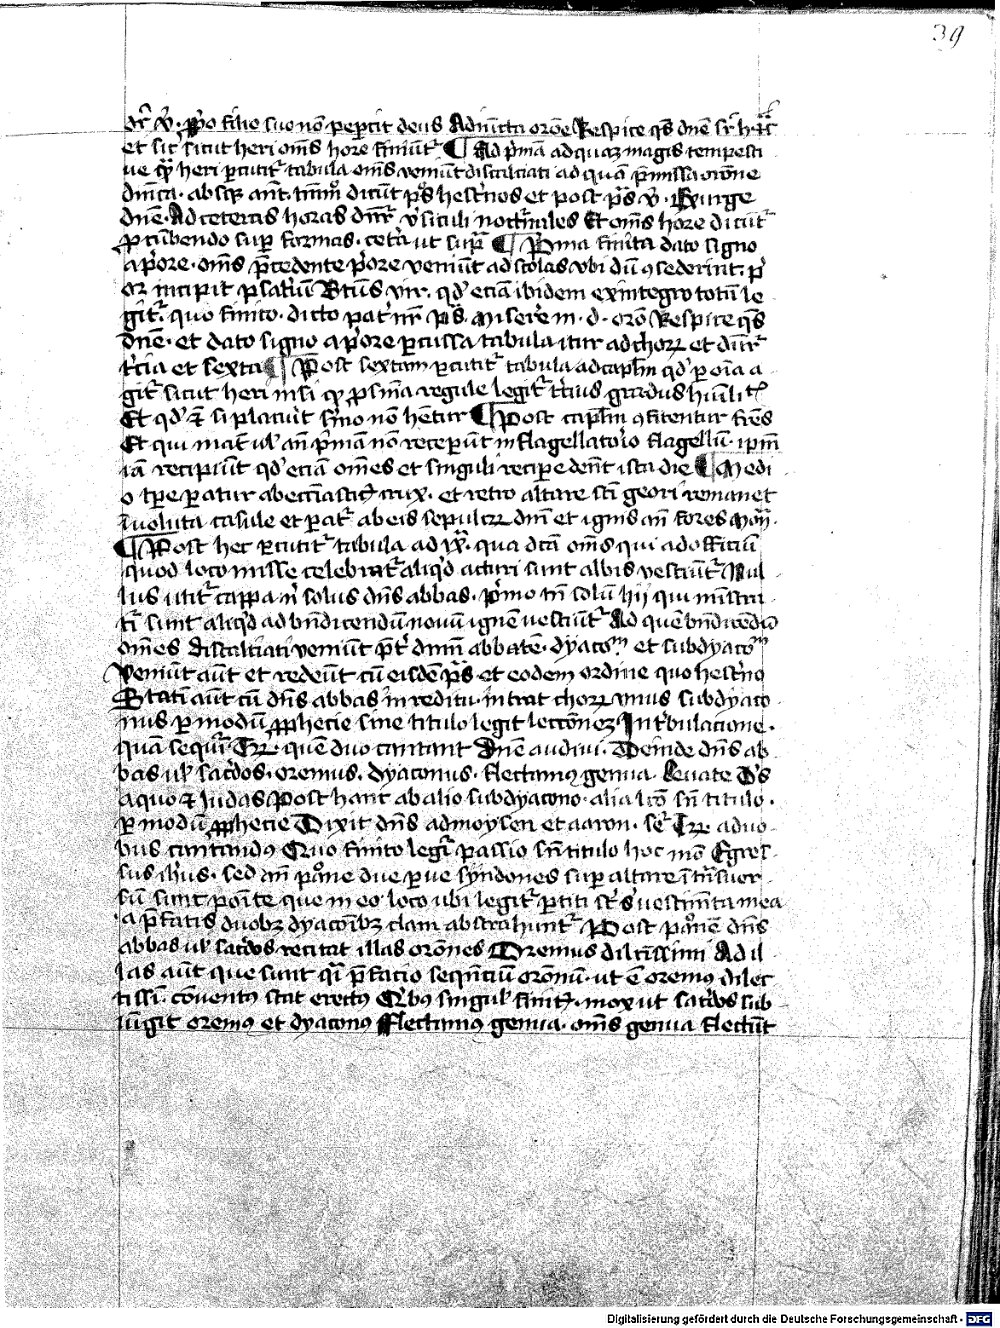 39
dr̄ v̄. Pro filio suo nō peꝑcit deus Adiūcta orōe Respice qs dn̄e sr̄ h
et sic sicut heri om̄s hore finiūtͬ ¶ Ad p̄mā ad quaꝫ magis tempesti
ue qͣ heri ꝑcutitͬ tabula om̄s veniūt discalciati ad quā p̄missa orōne
dn̄ica. absqꝫ ant. tantūmō dicūt ps̄ hestnos et post ps̄ v̄. Exurge
dn̄e. Ad ceteras horas dn̄r v̓siculi nocturnales Et om̄s hore dicūtͬ
ꝓcūbendo suꝑ formas. cetͣ ut supͣ ¶ Prima finita dato signo
a p̓ore. om̄s p̄cedente p̓ore veniūt ad scolas vbi dū ꝯsederint. p̓
or incipit psalt̓iū Bt̄us vir. qd̓ eciā ibidem ex integro totū le
gitͬ. quo finito. dicto pat̓ nr̄ ps̄. Miserere m. d. orō Respice qs̄
dn̄e. et dato signo a p̓ore ꝑcussa tabula itur ad choꝝ et dn̄r
t̓cia et sexta ¶ Post sextam ꝑcutitͬ tabula ad capl̄m qd̓ ꝑ oīa a
gitͬ sicut heri nisi qꝫ ꝓ smā regule legitͬ t̓cius gradus humilitͭ
Et qd̓ ē si placuit smo nō hētur ¶ Post capl̄m ꝯfitentur frēs
Et qui mat̄ ul̓ an̄ p̓mā nō receperūt in flagellatorio flagellū. ip̄m
iā recipiūt qd̓ eciā om̄es et singuli recipe dēnt ista die ¶ Medi
o tꝑe ꝑatur ab ecclīasticꝭ crux. et retro altare scī georī remanet
īuoluta casule et ꝑatͬ ab eis sepulcꝝ dn̄i et ignis an̄ fores
¶ Post hec ꝑcutitͬ tabula ad . qua dcā om̄s qui ad officiū
quod loco misse celebratͬ aliqd̓ acturi sunt albis vestiūtͬ Nul
lus utitͬ cappa nͥ solus dn̄s abbas. Pͥmo tn̄ solū hij qui mīstra
tͥ sunt aliqd̓ ad bn̄dicendū nouū ignē vestiūtͬ Ad quē bn̄dicēdū
om̄es discalciati veniūt p̄tͥ dn̄m abbatē. dyacoᵐ et subdyacoᵐ
Veniūt aūt et redeūt cū eisdē pͣs et eodem ordine quo hest̓no
Statī aūt cū dn̄s abbas in reditu intrat choꝝ vnus subdyaco
nus ꝑ modū ꝓphecie sine titulo legit lectioneꝫ In t̓bulacione.
quā sequitͬ Tꝝ. quē duo cantant Dn̄e audiui. Deinde dn̄s ab
bas ul̓ sac̓dos. oremus. dyaconus. flectamꝰ genua. Leuate Ds̄
a quo ⁊ Judas Post hanc ab alio subdyacono. alia lcō sn̄ titulo.
ꝑ modū ꝓphecie Dixit dn̄s ad moysen et aaron. se͛ Tꝝ. a duo
bus cantandꝰ Quo finito legitͬ passio sn̄ titulo hoc mō Egres
sus ih̄us. Sed an̄ pōne due ꝑue syndones suꝑ altare ī tn̄suer
sū sunt poīte que in eo loco ubi legitͬ ꝑtiti st̄ sͥ vestimta mea
a p̄fatis duobꝫ dyaconibꝫ clam abstrahuntͬ Post pōnē dn̄s
abbas ul̓ sac̓dos recitat illas orōnes Oremus dilectissimi Ad il
las aūt que sunt qͣi p̄facio sequenciū orōnū. ut ē oremꝰ dilec
tissi. cōuentꝰ stat erectꝰ Qͥbꝰ singul̓ finitꝭ. mox ut sac̓dos sub
iūgit oremꝰ et dyaconꝰ Flectamꝰ genua. om̄s genua flectūt
Digitalisierung gefördert durch die Deutsche Forschungsgemeinschaft - DFG